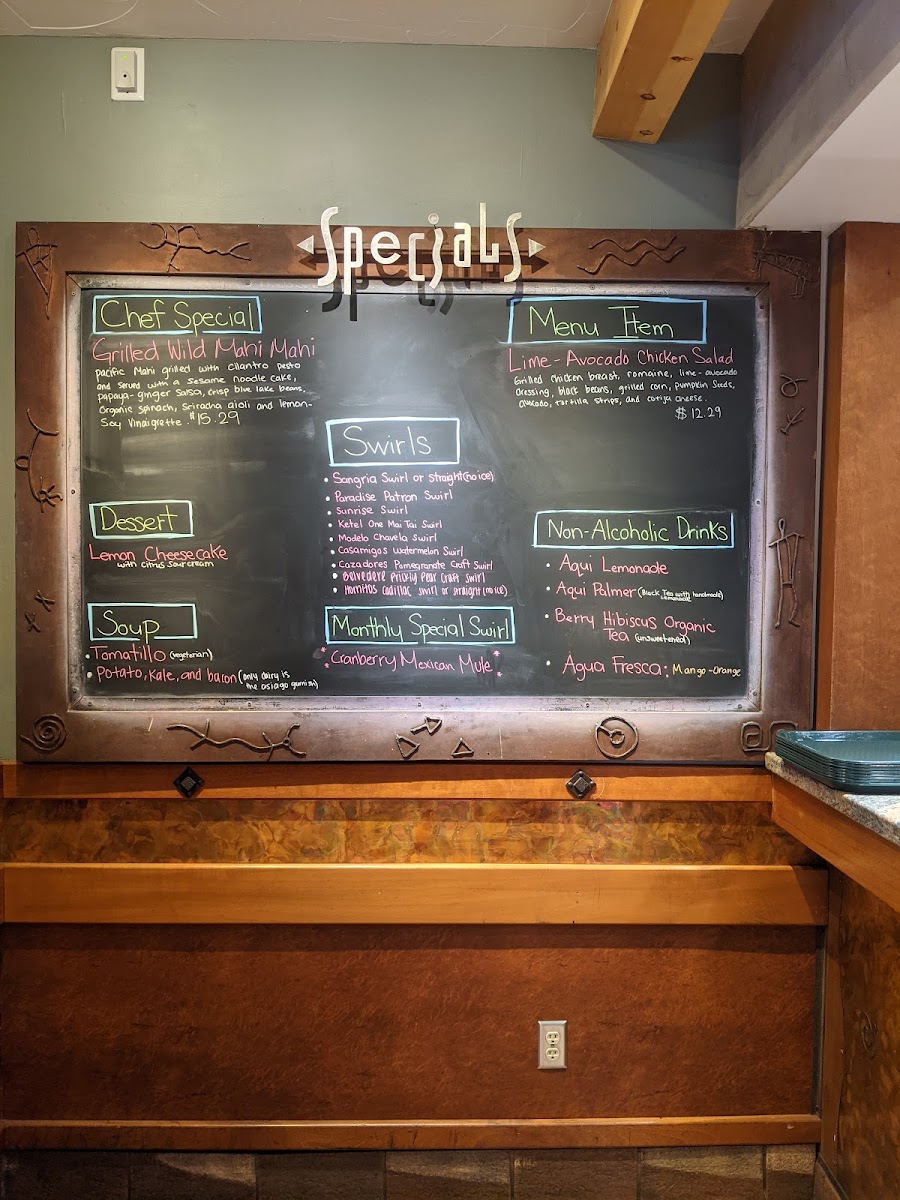 Specials
Chef Special
Grilled Wild Mahi Mahi
pacific Mahi grilled with cilantro pesto
and served with a sesame noodle cake,
papaya-ginger salsa, crisp blue lake beans,
organic spinach, sriracha aioli and lemon-
Soy Vinaigrette. $15.29
Dessert
Lemon Cheesecake
with citrus sour cream
Soup
• Tomatillo (vegetarian)
• Potato, Kale, and bacon (only dairy is
the asiago garnish)
Swirls
• Sangria Swirl or straight (no ice)
• Paradise Patron Swirl
• Sunrise Swirl
• Ketel One Mai Tai Swirl
• Modelo Chavela Swirl
• Casamigos Watermelon Swirl
• Cazadores Pomegranate Craft Swirl
• Belvedere Prickly Pear Craft Swirl
• Hornitos Cadillac Swirl or straight (no ice)
Monthly Special Swirl
* Cranberry Mexican Mule *
Menu Item
Lime-Avocado Chicken Salad
Grilled chicken breast, romaine, lime-avocado
dressing, black beans, grilled corn, pumpkin seeds,
avocado, tortilla strips, and cotija cheese.
$12.29
Non-Alcoholic Drinks
• Aqui Lemonade
• Aqui Palmer (Black Tea with handmade)
Lemonade
• Berry Hibiscus Organic
Tea (unsweetened)
• Agua Fresca: Mango-Orange